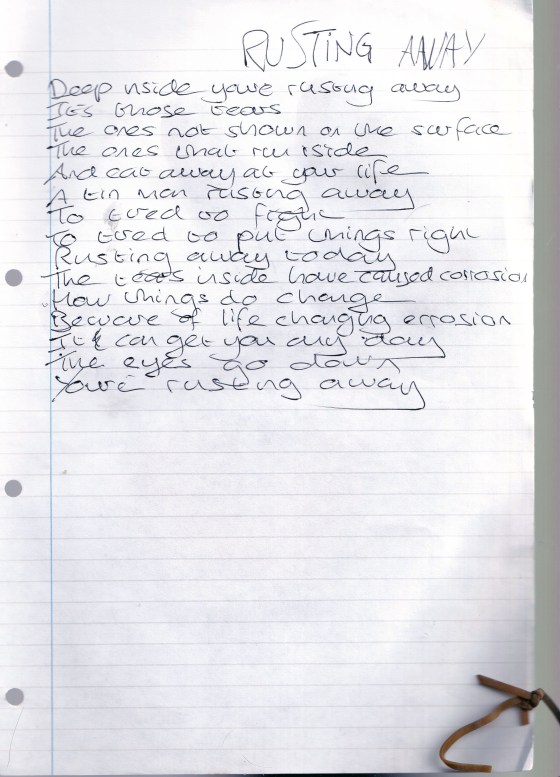 RUSTING AWAY
Deep nside youre rusting away
Its those tears
The ones not shown on the surface
The ones that run iside
And eat away at your life
A tin man rusting away
To tired to fight
To tired to put things right
Rusting away today
The tears inside have caused corrosion
How things do change
Beware of life changing errosion
It can get you any day
The eyes go down
Youre rusting away